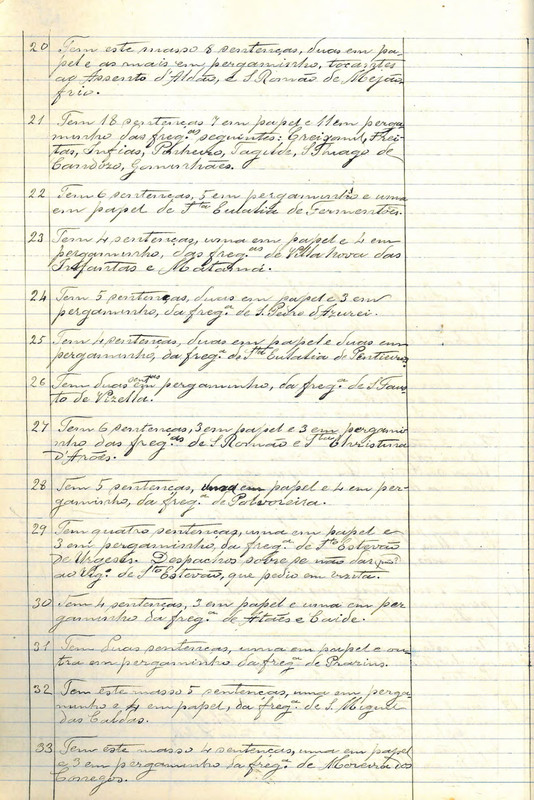 20 Tem este masso 8 sentenças, duas em pa-
pel e as mais em pergaminho, tocantes
ao Assento d'Aldão, e S. Romão de Mejão
frio.
21 Tem 18 sentenças 7 em papel e 11 em perga
minho das freg.as seguintes: Creixomil, Frei
tas, Infias, Pinheiro, Tagilde, S. Thiago de
Candozo, Gominhães.
22 Tem 6 sentenças, 5 em pergaminho e uma
em papel de S.ta Eulalia de Fermentões.
23 Tem 4 sentenças, uma em papel e 4 em
pergaminho, das freg.as de Villa Nova das
Infantas e Matamá.
24 Tem 5 sentenças, duas em papel e 3 em
pergaminho, da freg.a de S. Pedro d'Azurei.
25 Tem 4 sentenças, duas em papel e duas em
pergaminho, da freg.a de S.ta Eulalia de Pentieiros
26 Tem duas sent.as em pergaminho, da freg.a de S. Faus
to de Vizella.
27 Tem 6 sentenças, 3 em papel e 3 em pergami
nho das freg.as de S. Romão e S.ta Christina
d'Arões.
28 Tem 5 sentenças, uma em papel e 4 em per-
gaminho, da freg.a de Polvoreira.
29 Tem quatro sentenças, uma em papel e
3 em pergaminho, da freg.a de S.to Estevão
de Urgeses. Despachos sobre se não dar
ao Vig.o de S.to Estevão, que pedio em vesita.
30 Tem 4 sentenças, 3 em papel e uma em per
gaminho da freg.a de Atães e Caide.
31 Tem duas sentenças, uma em papel e ou-
tra em pergaminho da freg.a de Prazins.
32 Tem este masso 5 sentenças, uma em perga-
minho e 4 em papel, da freg.a de S. Miguel
das Caldas.
33 Tem este masso 4 sentenças, uma em papel
e 3 em pergaminho da freg.a de Moreira dos
Conegos.